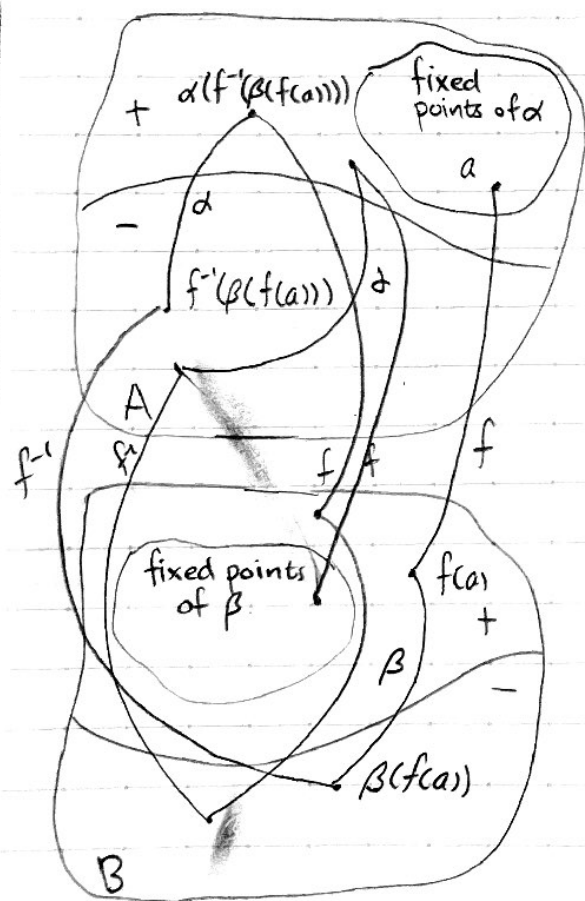 α(f⁻¹(β(f(a))))
fixed
points of α
+
a
α
−
f⁻¹(β(f(a)))
α
A
f⁻¹
f⁻¹
f
f
f
fixed points
of β
f(a)
+
β
−
β(f(a))
B